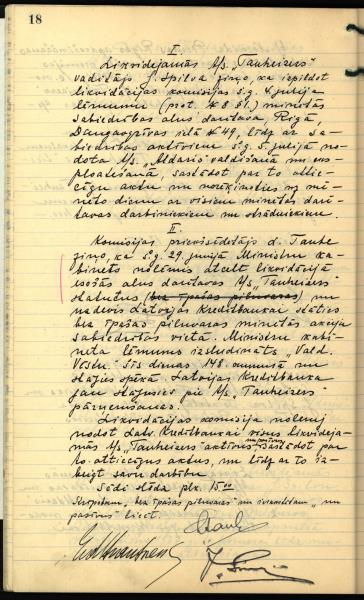 18
I.
Likvidejamās A/s. „Tanheizers"
vadītājs J. Spilva ziņo, ka izpildot
likvidācijas komisijas š.g. 4. jūlija
lēmumu (prot. № 8 51.) minētās
sabiedrības alus darītava, Rīgā,
Daugavgrīvas ielā № 49, līdz ar sa-
biedrības aktīviem š.g. 5. jūlijā no-
dota A/s. „Aldaris" valdīšanā un eks-
ploatēšanā, sastādot par to attie-
cīgu aktu un norēķinoties uz mi-
nēto dienu ar visiem minētās darī-
tavas darbiniekiem un strādniekiem.
II.
Komisijas priekšsēdētājs d. Taube
ziņo, ka š.g. 29. jūnijā Ministru ka-
binets nolēmis atcelt likvidācijā
esošās alus darītavas A/s „Tanheizers"
statutus (bez īpašas pilnvaras) un
uzdevis Latvijas Kreditbankai stāties
bez īpašas pilnvaras minētās akciju
sabiedrības vietā. Ministru kabi-
neta lēmums izsludināts „Vald.
Vēstn." šīs dienas 148. numurā un
stājies spēkā. Latvijas Kreditbanka
jau stājusies pie A/s „Tanheizers"
pārņemšanas.
Likvidācijas komisija nolemj
nodot Latv. Kreditbankai visus likvidēja-
mās A/s „Tanheizers" aktīvus un pasīvus, sastādot par
to attiecīgus aktus, un līdz ar to iz-
beigt savu darbību.
Sēdi slēdz plkst. 15⁰⁰
Strīpotam „bez īpašas pilnvaras" un ierakstītam „un
pasīvus" ticēt.